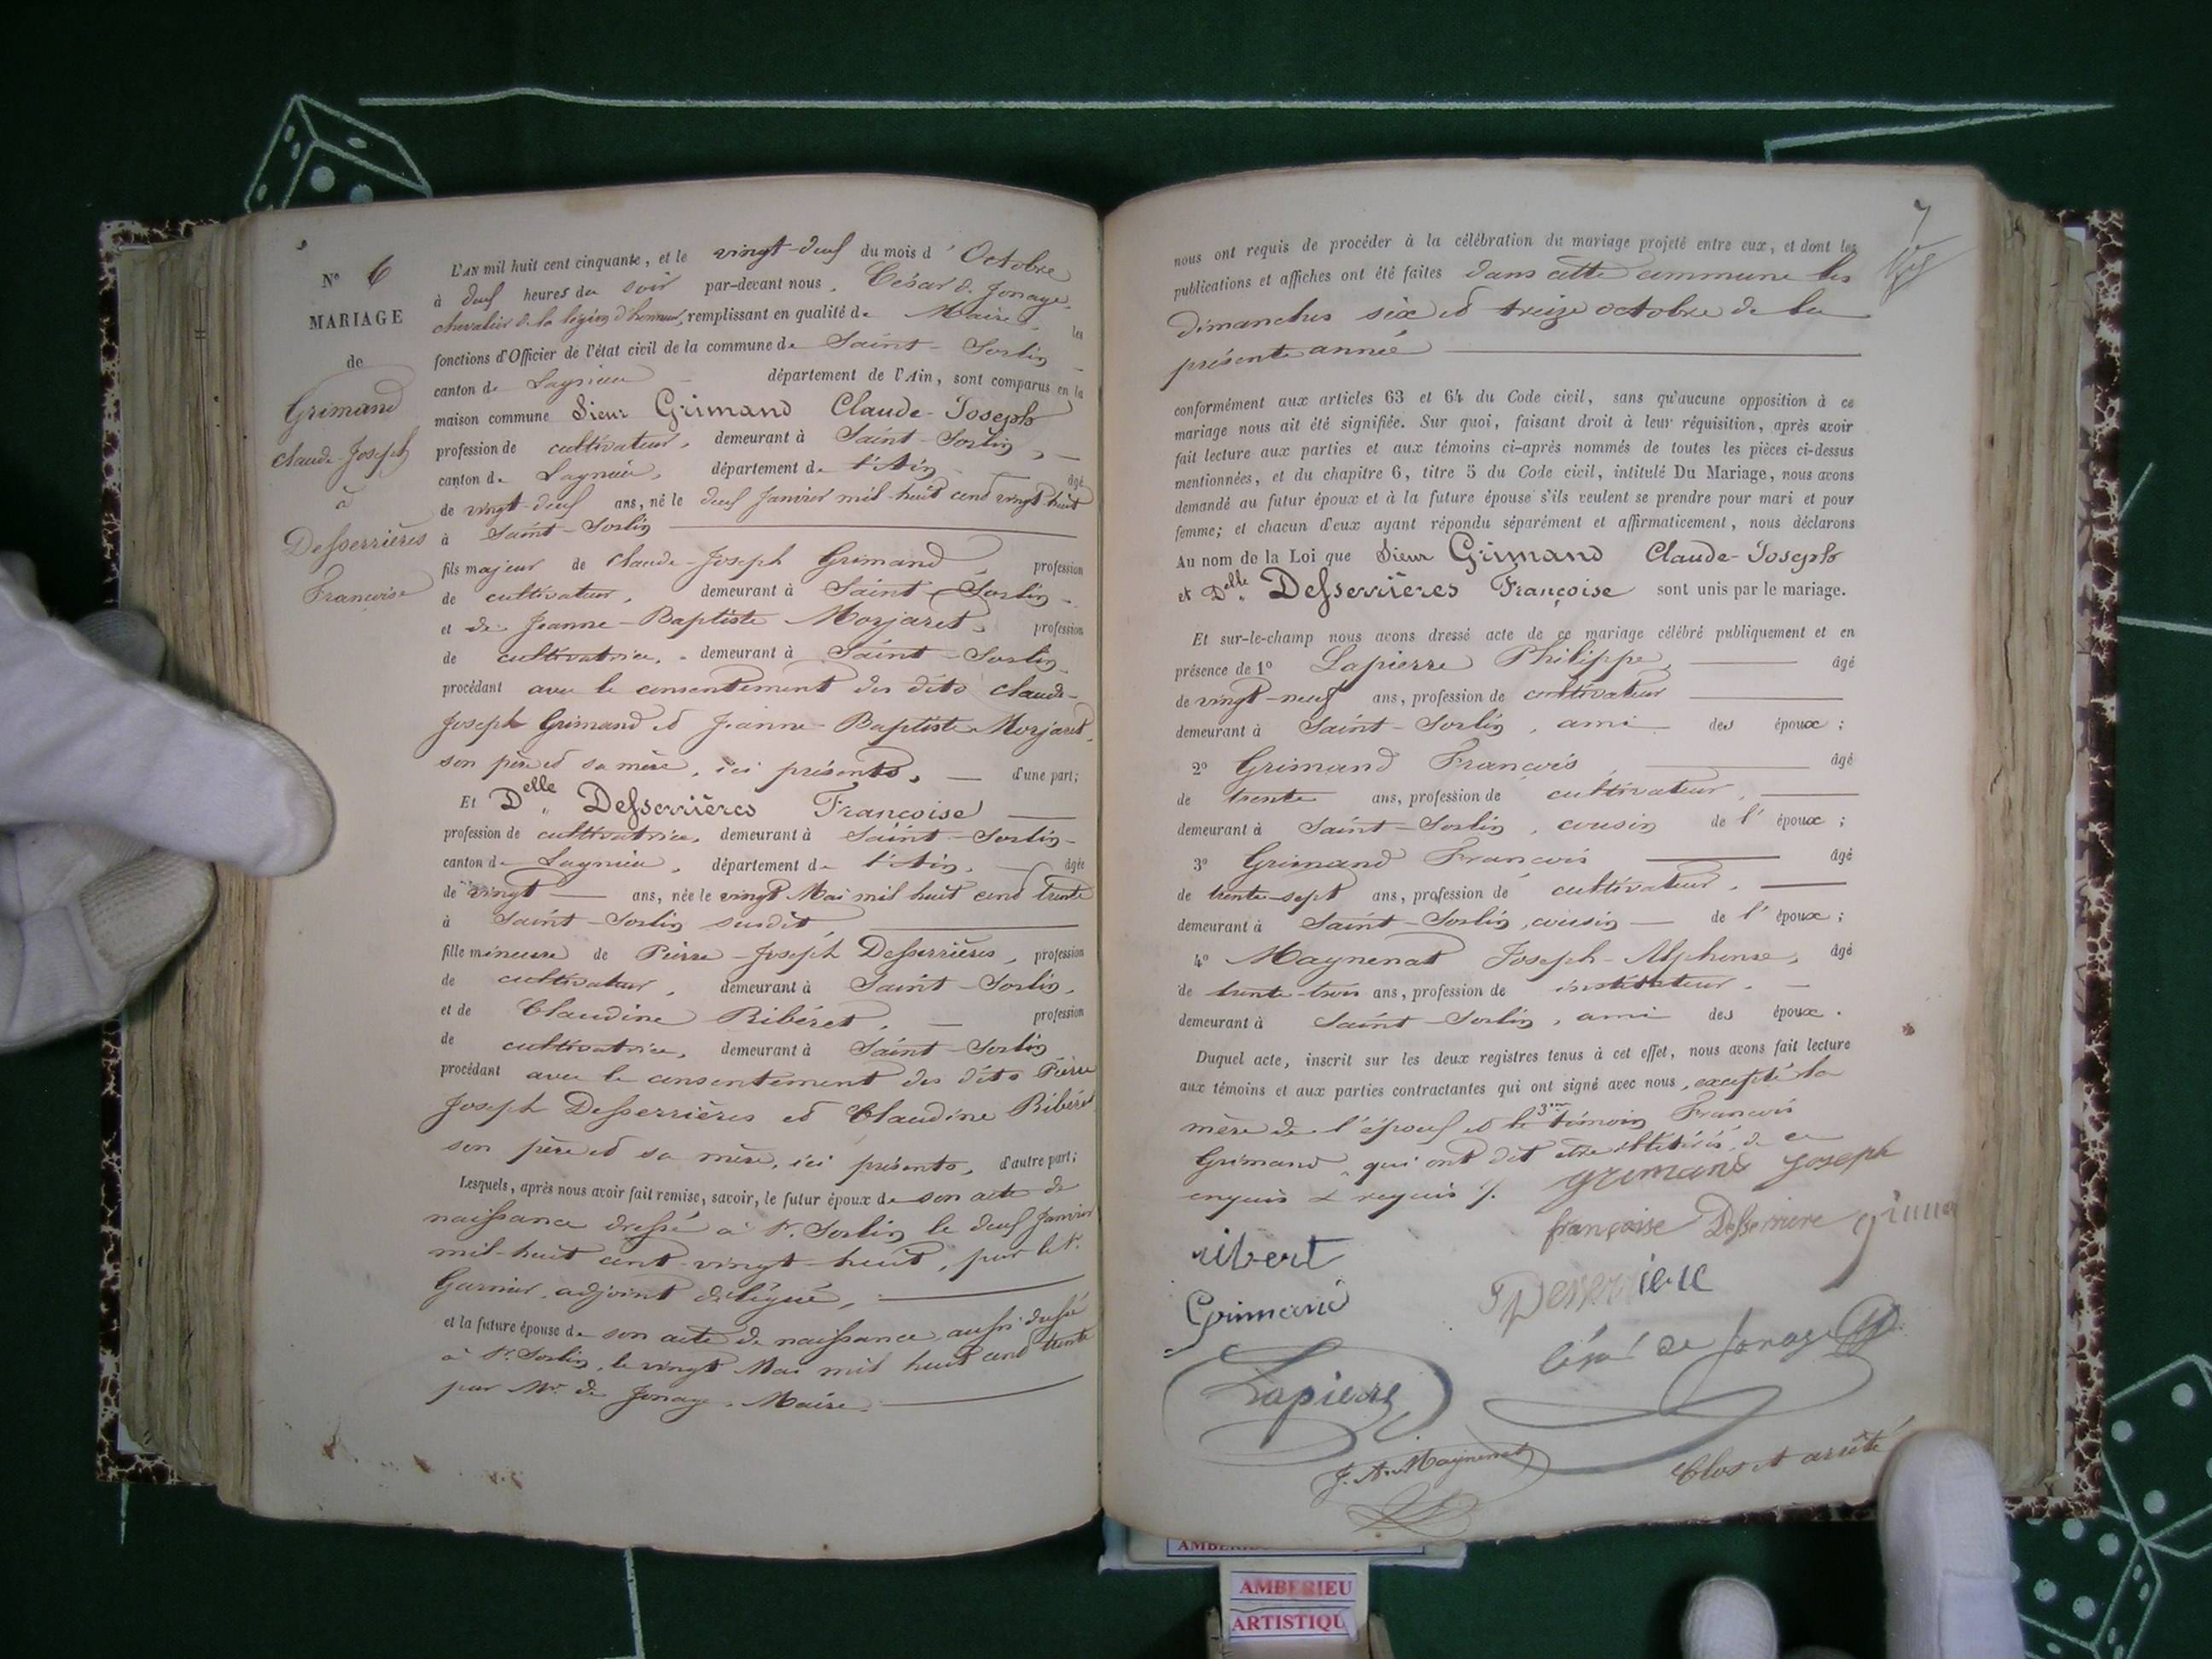 N° 6
MARIAGE
de
Grimand
Claude-Joseph
à
Desserrières
Françoise
L'AN mil huit cent cinquante, et le vingt-deux du mois d'Octobre
à deux heures du soir par-devant nous, César de Jonage,
chevalier de la légion d'honneur, remplissant en qualité de Maire, les
fonctions d'Officier de l'état civil de la commune de Saint-Sorlin
canton de Lagnieu département de l'Ain, sont comparus en la
maison commune Sieur Grimand Claude-Joseph
profession de cultivateur, demeurant à Saint-Sorlin,
canton de Lagnieu, département de l'Ain, âgé
de vingt-deux ans, né le deux Janvier mil huit cent vingt-huit
à Saint-Sorlin
fils majeur de Claude-Joseph Grimand, profession
de cultivateur, demeurant à Saint-Sorlin
et de Jeanne-Baptiste Morjaret, profession
de cultivatrice, demeurant à Saint-Sorlin
procédant avec le consentement des dits Claude-
Joseph Grimand et Jeanne-Baptiste Morjaret,
son père et sa mère, ici présents, d'une part;
Et Delle Desserrières Françoise
profession de cultivatrice, demeurant à Saint-Sorlin
canton de Lagnieu, département de l'Ain, âgée
de vingt ans, née le vingt Mai mil huit cent trente
à Saint-Sorlin susdit
fille mineure de Pierre-Joseph Desserrières, profession
de cultivateur, demeurant à Saint-Sorlin,
et de Claudine Ribéret, profession
de cultivatrice, demeurant à Saint-Sorlin
procédant avec le consentement des dits Pierre
Joseph Desserrières et Claudine Ribéret
son père et sa mère, ici présents, d'autre part;
Lesquels, après nous avoir fait remise, savoir, le futur époux de son acte de
naissance dressé à St. Sorlin le deux Janvier
mil-huit cent-vingt-huit, par le Sr.
Garnier, adjoint délégué,
et la future épouse de son acte de naissance aussi dressé
à St. Sorlin, le vingt Mai mil huit cent trente
par Mr. de Jonage, Maire.
7
nous ont requis de procéder à la célébration du mariage projeté entre eux, et dont les
publications et affiches ont été faites dans cette commune les
dimanches six et treize octobre de la
présente année
conformément aux articles 63 et 64 du Code civil, sans qu'aucune opposition à ce
mariage nous ait été signifiée. Sur quoi, faisant droit à leur réquisition, après avoir
fait lecture aux parties et aux témoins ci-après nommés de toutes les pièces ci-dessus
mentionnées, et du chapitre 6, titre 5 du Code civil, intitulé Du Mariage, nous avons
demandé au futur époux et à la future épouse s'ils veulent se prendre pour mari et pour
femme; et chacun d'eux ayant répondu séparément et affirmativement, nous déclarons
Au nom de la Loi que Sieur Grimand Claude-Joseph
et Delle Desserrières Françoise sont unis par le mariage.
Et sur-le-champ nous avons dressé acte de ce mariage célébré publiquement et en
présence de 1° Lapierre Philippe, âgé
de vingt-neuf ans, profession de cultivateur
demeurant à Saint-Sorlin, ami des époux;
2° Grimand François, âgé
de trente ans, profession de cultivateur,
demeurant à Saint-Sorlin, cousin de l'époux;
3° Grimand François âgé
de trente-sept ans, profession de cultivateur,
demeurant à Saint-Sorlin, cousin de l'époux;
4° Maynenat Joseph-Alphonse, âgé
de trente-trois ans, profession de instituteur,
demeurant à Saint-Sorlin, ami des époux.
Duquel acte, inscrit sur les deux registres tenus à cet effet, nous avons fait lecture
aux témoins et aux parties contractantes qui ont signé avec nous, excepté la
mère de l'époux et le 3me témoin François
Grimand, qui ont dit être illitérés, de ce
enquis & requis
grimand joseph
françoise Desserriere
ribert
Desserriere
Grimand
César de Jonage
Lapierre
J. A. Maynenat
Clos et arrêté
AMBERIEU
ARTISTIQU